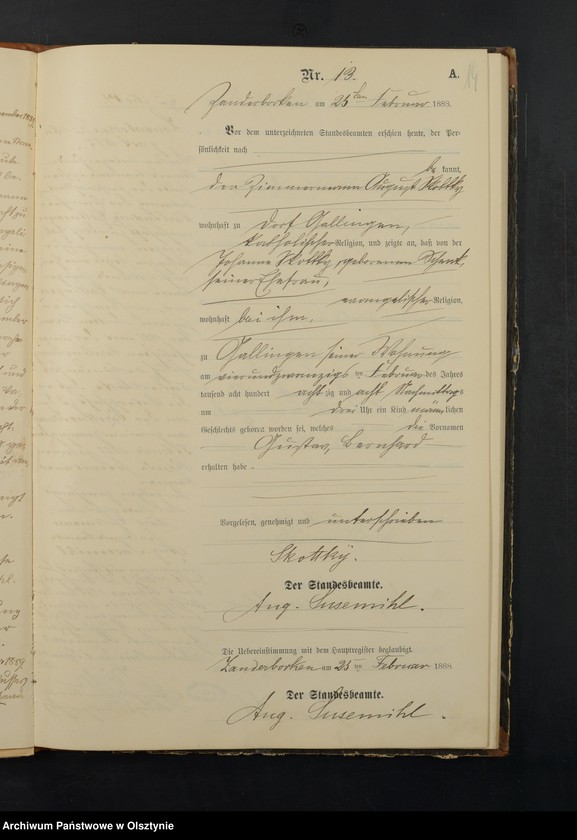 Nr. 13. A. 14
Zanderborken am 25ten Februar 1888.
Vor dem unterzeichneten Standesbeamten erschien heute, der Per-
sönlichkeit nach
be kannt,
der Zimmermann August Skottky
wohnhaft zu Dorf Gallingen,
katholischer Religion, und zeigte an, daß von der
Johanne Skottky, geborenen Schenk,
seiner Ehefrau,
evangelischer Religion,
wohnhaft bei ihm,
zu Gallingen seiner Wohnung
am vierundzwanzigs ten Februar des Jahres
tausend acht hundert acht zig und acht Nachmittags
um drei Uhr ein Kind männ lichen
Geschlechts geboren worden sei, welches die Vornamen
Gustav, Bernhard
erhalten habe.
Vorgelesen, genehmigt und unterschrieben
Skottky.
Der Standesbeamte.
Aug. Susemihl.
Die Uebereinstimmung mit dem Hauptregister beglaubigt.
Zanderborken am 25 ten Februar 1888.
Der Standesbeamte.
Aug. Susemihl.
Archiwum Państwowe w Olsztynie